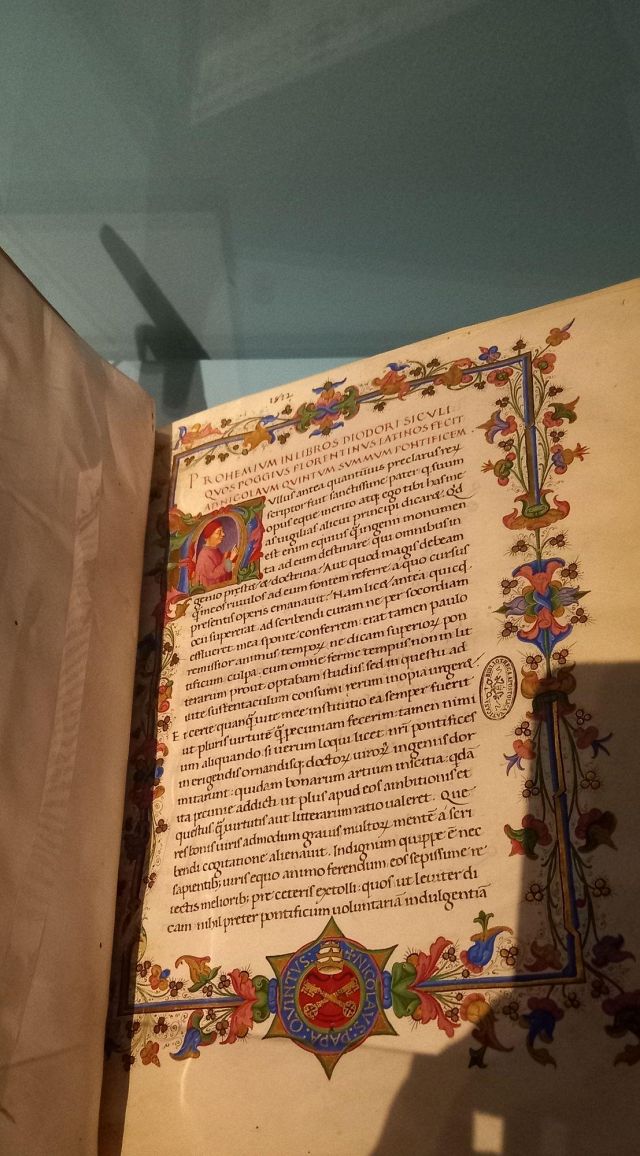 1812
PROHEMIVM IN LIBROS DIODORI SICVLI
QVOS POGGIVS FLORENTINVS LATINOS FECIT
AD NICOLAVM QVINTVM SVMMVM PONTIFICEM.
Vllus antea quantiuus preclarus reꝝ
scriptor fuit sanctissime pater q̃ suum
opus eque merito atq; ego tibi has me
as uigilias alicui principi dicarit. Qd̃
est enim equius q̃ ingenii monumen
ta ad eum destinare qui omnibus in
genio prestat & doctrina? Aut quod magis debeam
q̃ meos riuulos ad eum fontem referre a quo cursus
presentis operis emanauit? Nam licet antea quicq̃
ocii supererat ad scribendi curam ne per socordiam
efflueret mea sponte conferrem: erat tamen paulo
remissior animus temporꝝ ne dicam superioꝝ pon
tificum culpa: cum omne ferme tempus non in lit
terarum prout optabam studiis sed in questu ad
uite sustentaculum consumi rerum inopia urgeret.
Et certe quanq̃ uite mee institutio ea semper fuerit
ut pluris uirtutē q̃ pecuniam fecerim: tamen nimi
um aliquando si uerum loqui licet nr̃i pontifices
in erigendis ornandisq; doctoꝝ uiroꝝ ingeniis dor
mitarunt: quidam bonarum artium inscitia: qdã
ita pecunie addicti ut plus apud eos ambitionis et
questus q̃ uirtutis aut litterarum ratio ualeret. Que
res bonis uiris admodum grauis multoꝝ mentē a scri
bendi cogitatione alienauit. Indignum quippe ē nec
sapientib; uiris equo animo ferendum eos sepissime re
iectis meliorib; pre ceteris extolli: quos ut leuiter di
cam nihil preter pontificum uoluntariã indulgentiã
BIBLIOTHECA APOSTOLICA VATICANA
NICOLAVS PAPA QVINTVS